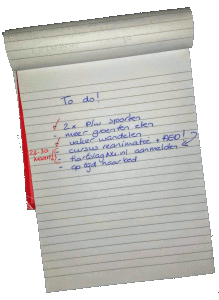 To do!
- 2x p/w sporten
- meer groenten eten
- vaker wandelen
- cursus reanimatie + AED!
- hartslagNu.nl aanmelden
- op tijd naar bed